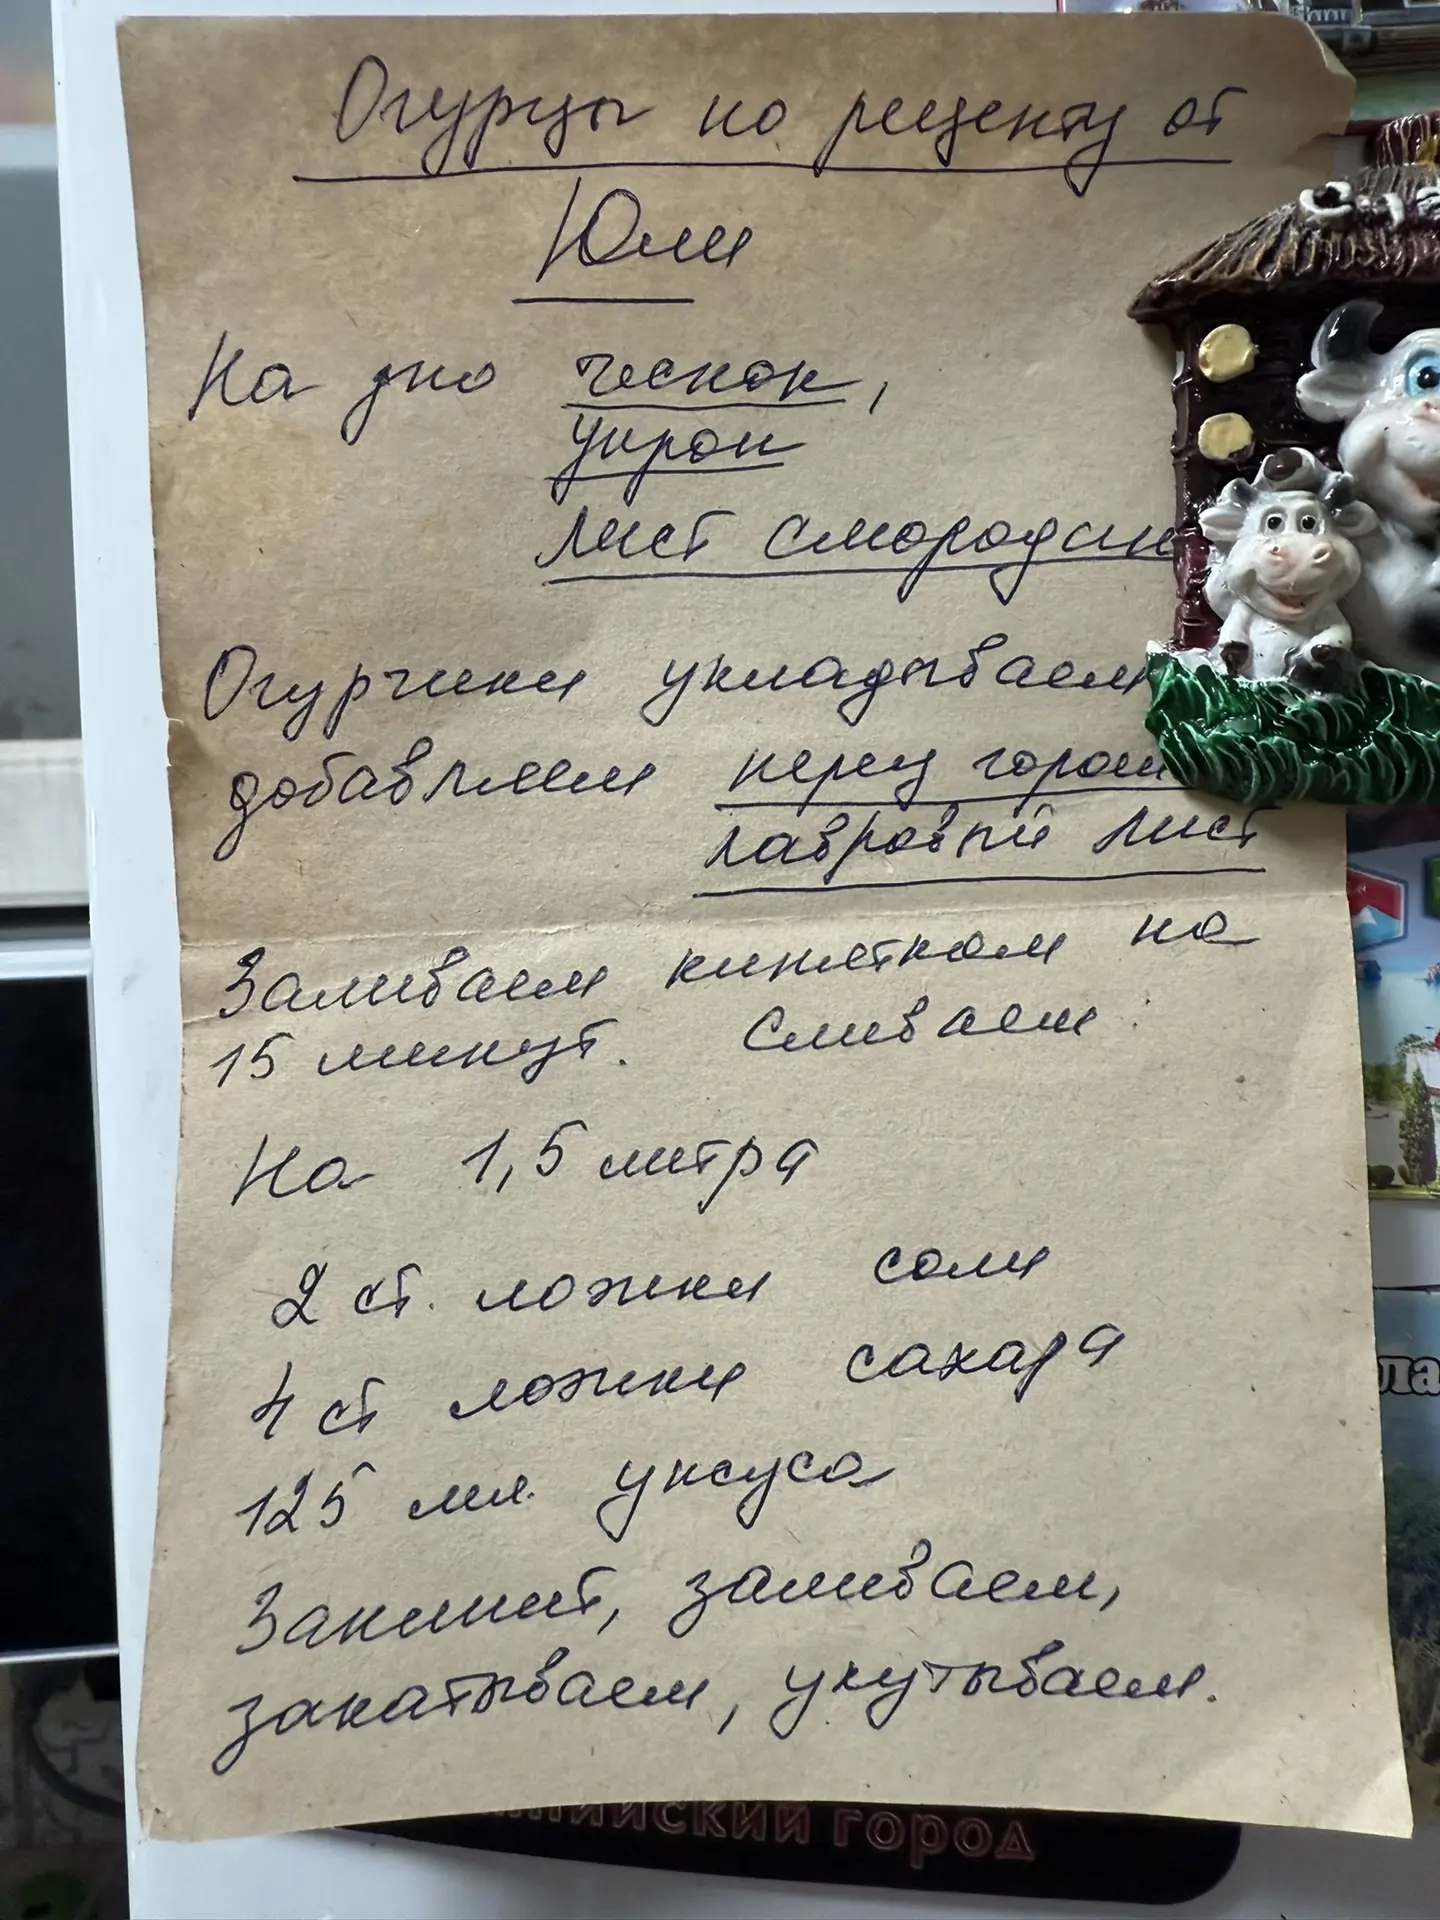 Огурцы по рецепту от
Юли
На дно чеснок,
укроп
лист смородин
Огурчики укладываем
добавляем перец горош
лавровый лист
Заливаем кипятком на
15 минут. Сливаем
На 1,5 литра
2 ст. ложки соли
4 ст ложки сахара
125 мл. уксуса
Закипит, заливаем,
закатываем, укутываем.
ийский город
ла